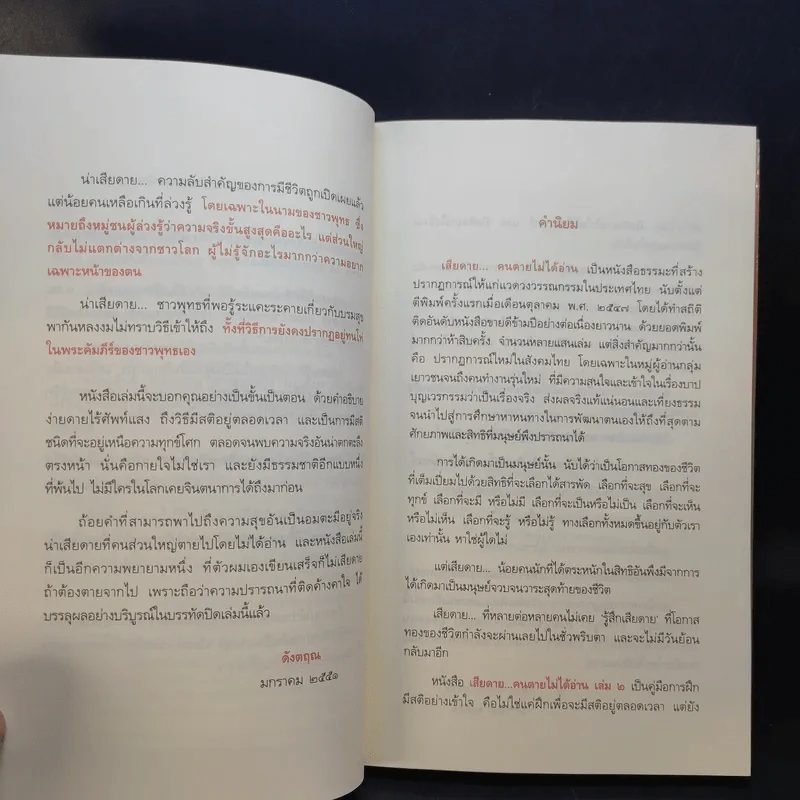 น่าเสียดาย... ความลับสำคัญของการมีชีวิตถูกเปิดเผยแล้ว
แต่น้อยคนเหลือเกินที่ล่วงรู้ โดยเฉพาะในนามของชาวพุทธ ซึ่ง
หมายถึงหมู่ชนผู้ล่วงรู้ว่าความจริงขั้นสูงสุดคืออะไร แต่ส่วนใหญ่
กลับไม่แตกต่างจากชาวโลก ผู้ไม่รู้จักอะไรมากกว่าความอยาก
เฉพาะหน้าของตน
น่าเสียดาย... ชาวพุทธที่พอรู้ระแคะระคายเกี่ยวกับบรมสุข
พากันหลงงมไม่ทราบวิธีเข้าให้ถึง ทั้งที่วิธีการยังคงปรากฏอยู่ทนโท่
ในพระคัมภีร์ของชาวพุทธเอง
หนังสือเล่มนี้จะบอกคุณอย่างเป็นขั้นเป็นตอน ด้วยคำอธิบาย
ง่ายดายไร้ศัพท์แสง ถึงวิธีมีสติอยู่ตลอดเวลา และเป็นการมีสติ
ชนิดที่จะอยู่เหนือความทุกข์โศก ตลอดจนพบความจริงอันน่าตกตะลึง
ตรงหน้า นั่นคือกายใจไม่ใช่เรา และยังมีธรรมชาติอีกแบบหนึ่ง
ที่พ้นไป ไม่มีใครในโลกเคยจินตนาการได้ถึงมาก่อน
ถ้อยคำที่สามารถพาไปถึงความสุขอันเป็นอมตะมีอยู่จริง
น่าเสียดายที่คนส่วนใหญ่ตายไปโดยไม่ได้อ่าน และหนังสือเล่มนี้
ก็เป็นอีกความพยายามหนึ่ง ที่ตัวผมเองเขียนเสร็จก็ไม่เสียดาย
ถ้าต้องตายจากไป เพราะถือว่าความปรารถนาที่ติดค้างคาใจ ได้
บรรลุผลอย่างบริบูรณ์ในบรรทัดปิดเล่มนี้แล้ว
ดังตฤณ
มกราคม ๒๕๕๑
คำนิยม
เสียดาย... คนตายไม่ได้อ่าน เป็นหนังสือธรรมะที่สร้าง
ปรากฏการณ์ให้แก่แวดวงวรรณกรรมในประเทศไทย นับตั้งแต่
ตีพิมพ์ครั้งแรกเมื่อเดือนตุลาคม พ.ศ. ๒๕๔๗ โดยได้ทำสถิติ
ติดอันดับหนังสือขายดีข้ามปีอย่างต่อเนื่องยาวนาน ด้วยยอดพิมพ์
มากกว่าห้าสิบครั้ง จำนวนหลายแสนเล่ม แต่สิ่งสำคัญมากกว่านั้น
คือ ปรากฏการณ์ใหม่ในสังคมไทย โดยเฉพาะในหมู่ผู้อ่านกลุ่ม
เยาวชนจนถึงคนทำงานรุ่นใหม่ ที่มีความสนใจและเข้าใจในเรื่องบาป
บุญเวรกรรมว่าเป็นเรื่องจริง ส่งผลจริงแท้แน่นอนและเที่ยงธรรม
จนนำไปสู่การศึกษาหาหนทางในการพัฒนาตนเองให้ถึงที่สุดตาม
ศักยภาพและสิทธิที่มนุษย์พึงปรารถนาได้
การได้เกิดมาเป็นมนุษย์นั้น นับได้ว่าเป็นโอกาสทองของชีวิต
ที่เต็มเปี่ยมไปด้วยสิทธิที่จะเลือกได้สารพัด เลือกที่จะสุข เลือกที่จะ
ทุกข์ เลือกที่จะมี หรือไม่มี เลือกที่จะเป็นหรือไม่เป็น เลือกที่จะเห็น
หรือไม่เห็น เลือกที่จะรู้ หรือไม่รู้ ทางเลือกทั้งหมดขึ้นอยู่กับตัวเรา
เองเท่านั้น หาใช่ผู้ใดไม่
แต่เสียดาย... น้อยคนนักที่ได้ตระหนักในสิทธิอันพึงมีจากการ
ได้เกิดมาเป็นมนุษย์จวบจนวาระสุดท้ายของชีวิต
เสียดาย... ที่หลายต่อหลายคนไม่เคย 'รู้สึกเสียดาย' ที่โอกาส
ทองของชีวิตกำลังจะผ่านเลยไปในชั่วพริบตา และจะไม่มีวันย้อน
กลับมาอีก
หนังสือ เสียดาย...คนตายไม่ได้อ่าน เล่ม ๒ เป็นคู่มือการฝึก
มีสติอย่างเข้าใจ คือไม่ใช่แค่ฝึกเพื่อจะมีสติอยู่ตลอดเวลา แต่ยัง